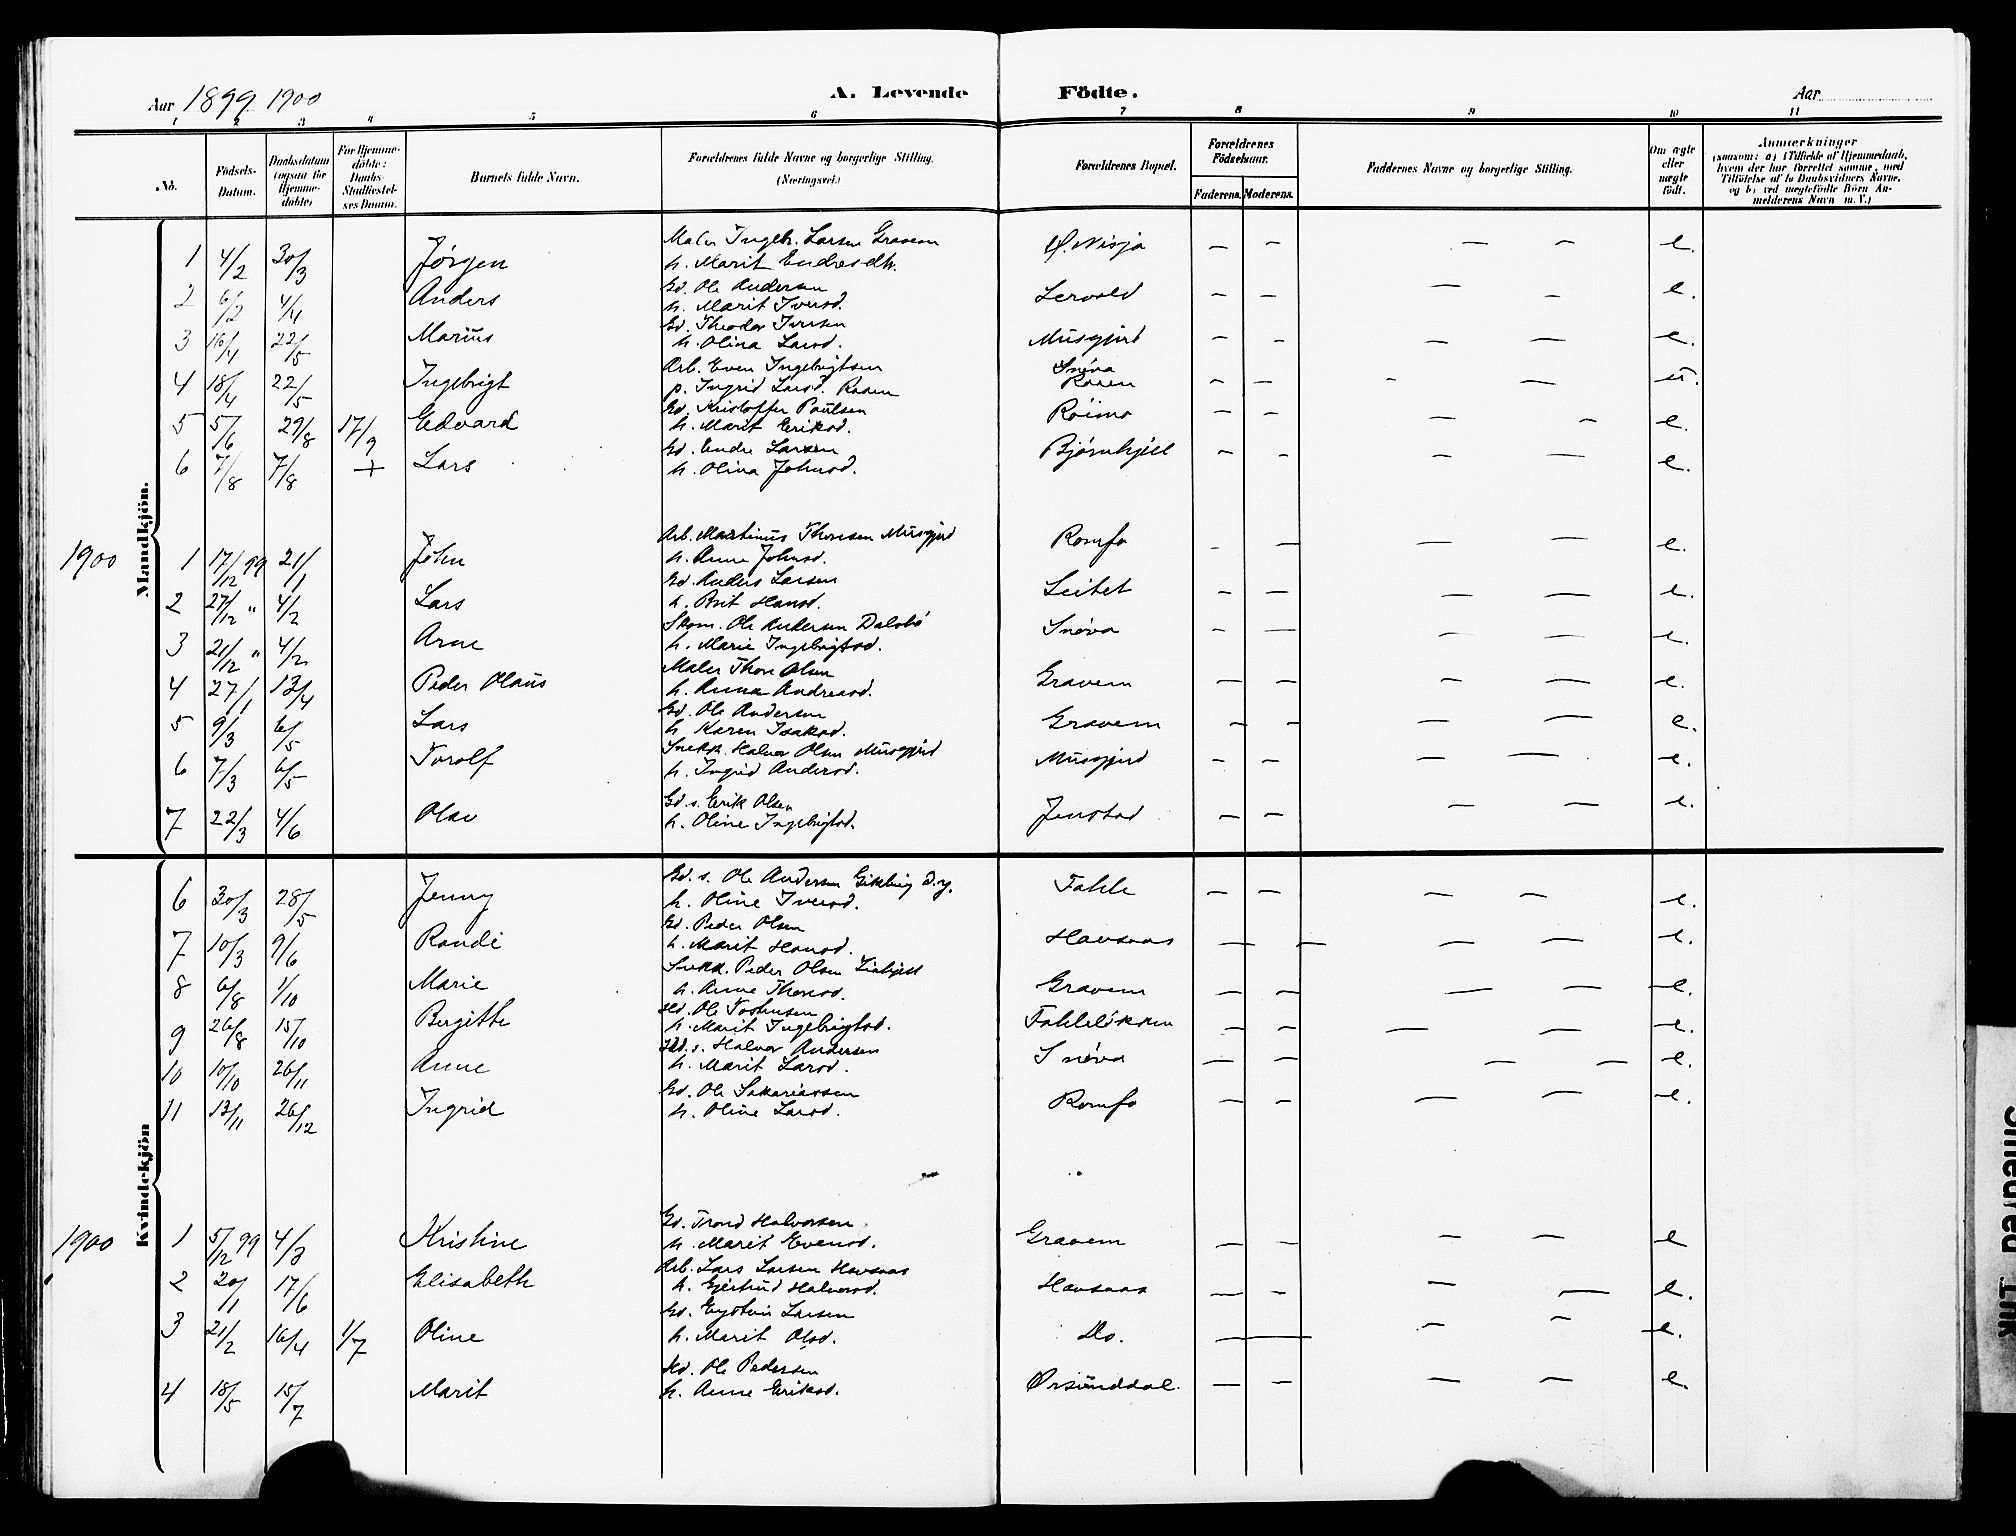 Aar 1899. 1900
A. Levende Födte.
Aar
1 2 3 4 5 6 7 8 9 10 11
No. Födsels-Datum. Daabsdatum (ogsaa for Hjemme-döbte) For Hjemme-döbte: Daabs-Stadfæstel-ses Datum. Barnets fulde Navn. Forældrenes fulde Navne og borgerlige Stilling. (Næringsvei.) Forældrenes Bopæl. Forældrenes Födselsaar. Faderens. Moderens. Faddernes Navne og borgerlige Stilling. Om ægte eller uægte födt. Anmærkninger
(saasom: a) i Tilfælde af Hjemmedaab, hvem der har forrettet samme, med Tilföielse af to Daabsvidners Navne, og b) ved uægtefödte Börn An-melderens Navn m. V.)
Mandkjön.
Maler Ingebr. Larsen Gravem
1 4/2 30/3 Jørgen h. Marit Endresdtr. Ø. Nisja — — — — e.
Gd. Ole Andersen
2 6/2 4/4 Anders h. Marit Iversd. Lervold — — — — e.
Gd. Theodor Iversen
3 16/4 22/5 Marius h. Olina Larsd. Musgjerd — — — — e.
Arb. Even Ingebrigtsen Snöva
4 18/4 22/5 Ingebrigt p. Ingrid Larsd. Raaen Raaen — — — — u.
Gd. Kristoffer Paulsen
5 5/6 29/8 17/9 Edvard h. Marit Eriksd. Röimo — — — — e.
Gd. Endre Larsen
6 7/8 7/8 + Lars h. Olina Johnsd. Bjørnhjell — — — — e.
Arb. Martinus Thoresen Musgjerd
1900 1 17/12 99 21/1 John h. Anne Johnsd. Romfo — — — — e.
Gd. Anders Larsen
2 27/12 " 4/2 Lars h. Brit Hansd. Leitet — — — — e.
Skom. Ole Andersen Dalsbö
3 21/12 " 4/2 Arne h. Marie Ingebrigtsd. Snöva — — — — e.
Maler Thore Olsen
4 27/1 13/4 Peder Olaus h. Anna Andreasd. Gravem — — — — e.
Gd. Ole Andersen
5 9/3 6/5 Lars h. Karen Isaksd. Gravem — — — — e.
Snekk. Halvor Olsen Musgjerd
6 7/3 6/5 Torolf h. Ingrid Andersd. Musgjerd — — — — e.
Gd. s. Erik Olsen
7 22/3 4/6 Olav h. Oline Ingebrigtsd. Jenstad — — — — e.
Kvindekjön
Gd. s. Ole Andersen Gikling d.y.
6 30/3 28/5 Jenny h. Oline Iversd. Fahle — — — — e.
Gd. Peder Olsen
7 10/3 9/6 Randi h. Marit Hansd. Havsaas — — — — e.
Snekk. Peder Olsen
8 6/8 1/10 Marie h. Anne Thoresd. Gravem — — — — e.
Gd. Ole Tostensen
9 26/8 15/10 Bergitte h. Marit Ingebrigtsd. Fahlelökken — — — — e.
Gd. s. Halvor Andersen
10 10/10 26/11 Anne h. Marit Larsd. Snöva — — — — e.
Gd. Ole Sakariassen
11 13/11 26/12 Ingrid h. Oline Larsd. Romfo — — — — e.
Gd. Trond Halvorsen
1900 1 5/12 99 4/3 Kristine h. Marit Evensd. Gravem — — — — e
Arb. Lars Larsen Havsaas
2 20/1 17/6 Elisabeth h. Gjertrud Halvorsd. Havsaas — — — — e.
Gd. Eystein Larsen
3 21/2 16/4 1/7 Oline h. Marit Olsd. Do. — — — — e.
Gd. Ole Pedersen
4 18/5 15/7 Marit h. Anne Eriksd. Ørsunddal. — — — — e.
Smeared Ink